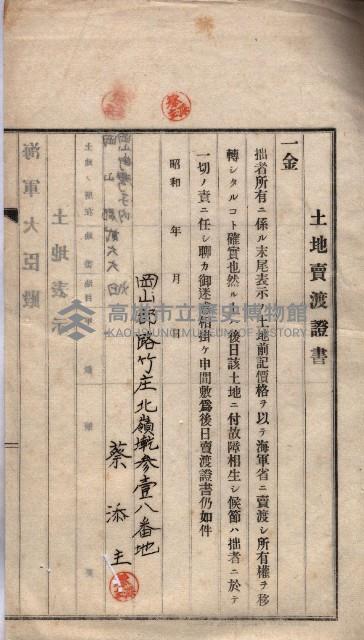 土地賣渡證書
一金
拙者所有ニ係ル末尾表示ノ土地前記價格ヲ以テ海軍省ニ賣渡シ所有權ヲ移
轉シタルコト確實也然ル上ハ後日該土地ニ付故障相生シ候節ハ拙者ニ於テ
一切ノ責ニ任シ聊カ御迷惑相掛ケ申間敷爲後日賣渡證書仍如件
昭和 年 月 日
岡山郡路竹庄北嶺墘參壹八番地
蔡添主
土地表示
海軍大臣殿
高雄市立歷史博物館
KAOHSIUNG MUSEUM OF HISTORY